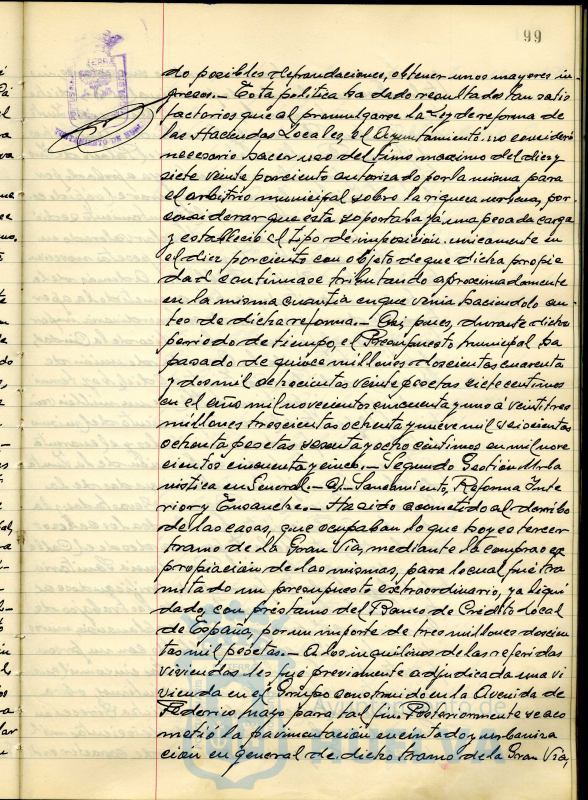 99
do posibles defraudaciones, obtener unos mayores in-
gresos.- Esta política ha dado resultados tan satis
factorios que al promulgarse la Ley de reforma de
las Haciendas Locales, el Ayuntamiento no consideró
necesario hacer uso del timo maximo del diez y
siete veinte por ciento autorizado por la misma para
el arbitrio municipal sobre la riqueza urbana, por
considerar que ésta soportaba yá una pesada carga
y estableció el tipo de imposición unicamente en
el diez por ciento con objeto de que dicha propie
dad continuase tributando aproximadamente
en la misma cuantía en que venia haciendolo an-
tes de dicha reforma.- Asi pues, durante dicho
periodo de tiempo, el Presupuesto municipal ha
pasado de quince millones doscientas cuarenta
y dos mil doscientas veinte pesetas siete centimos
en el año mil novecientos cincuenta y uno á veintitres
millones trescientas ochenta y nueve mil seiscientas
ochenta pesetas sesenta y ocho céntimos en mil nove
cientos cincuenta y cinco.- Segundo Gestión Urba
nistica en General.- a).- Saneamiento, Reforma Inte
rior y Ensanche.- Ha sido acometido el derribo
de las casas, que ocupaban lo que hoy es tercer
tramo de la Gran Vía, mediante la compra o ex
propiación de las mismas, para lo cual fué tra
mitado un presupuesto extraordinario, ya liqui
dado, con préstamo del Banco de Crédito Local
de España, por un importe de tres millones doscien
tas mil pesetas.- A los inquilinos de las referidas
viviendas les fué previamente adjudicada una vi
vienda en el Grupo construido en la Avenida de
Federico Mayo para tal fin. Posteriormente se aco
metió la pavimentación encintado y urbaniza
ción en general de dicho tramo de la Gran Vía,
Ayuntamiento de